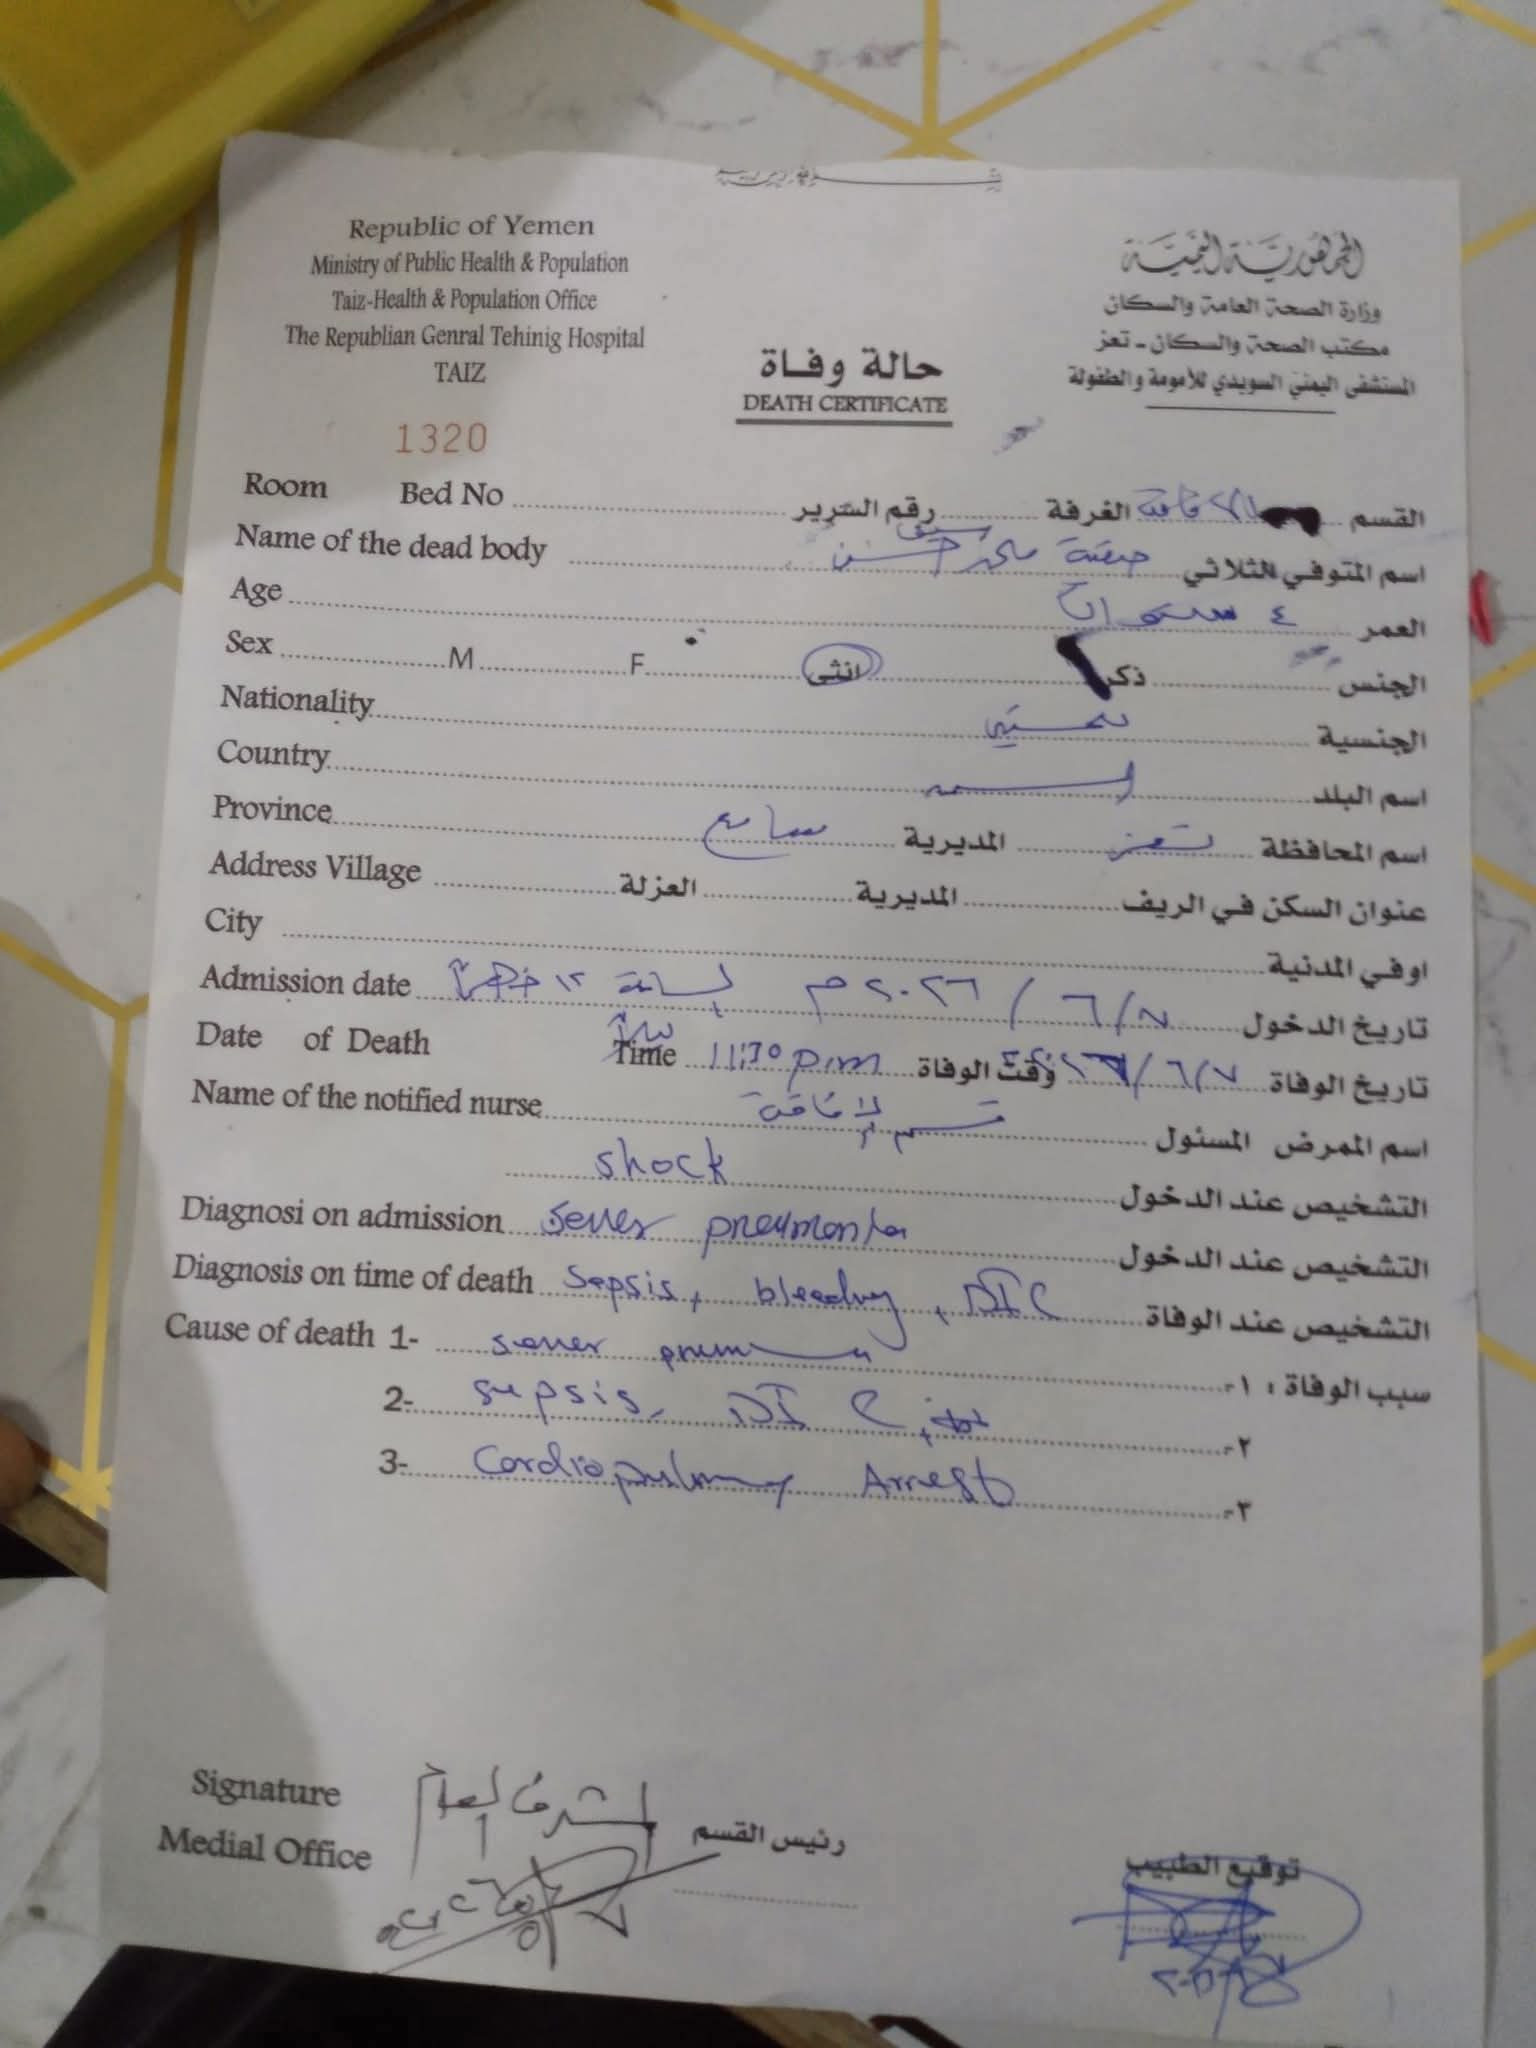 Republic of Yemen
Ministry of Public Health & Population
Taiz-Health & Population Office
The Republian Genral Tehinig Hospital
TAIZ
الجمهورية اليمنية
وزارة الصحة العامة والسكان
مكتب الصحة والسكان - تعز
المستشفى اليمني السويدي للأمومة والطفولة
حالة وفاة
DEATH CERTIFICATE
1320
Room Bed No رقم السرير الغرفة القسم
Name of the dead body اسم المتوفي الثلاثي محمد حسن
Age العمر ٤ سنوات
Sex M F انثى ذكر الجنس
Nationality الجنسية
Country اسم البلد
Province اسم المحافظة تعز المديرية سامع
Address Village عنوان السكن في الريف المديرية العزلة
City اوفي المدنية
Admission date تاريخ الدخول ٧/٦/٢٠٢٦م الساعة ١٢
Date of Death Time 11:30 p.m وقت الوفاة تاريخ الوفاة ٧/٦/
Name of the notified nurse اسم الممرض المسئول قسم الإفاقة
shock التشخيص عند الدخول
Diagnosi on admission pneumonia التشخيص عند الدخول
Diagnosis on time of death Sepsis, bleeding, DIC التشخيص عند الوفاة
Cause of death 1- سبب الوفاة : ١-
2- sepsis, DIC ٢-
3- Cardiopulmonary Arrest ٣-
Signature
Medial Office
المشرف العام
رئيس القسم
توقيع الطبيب